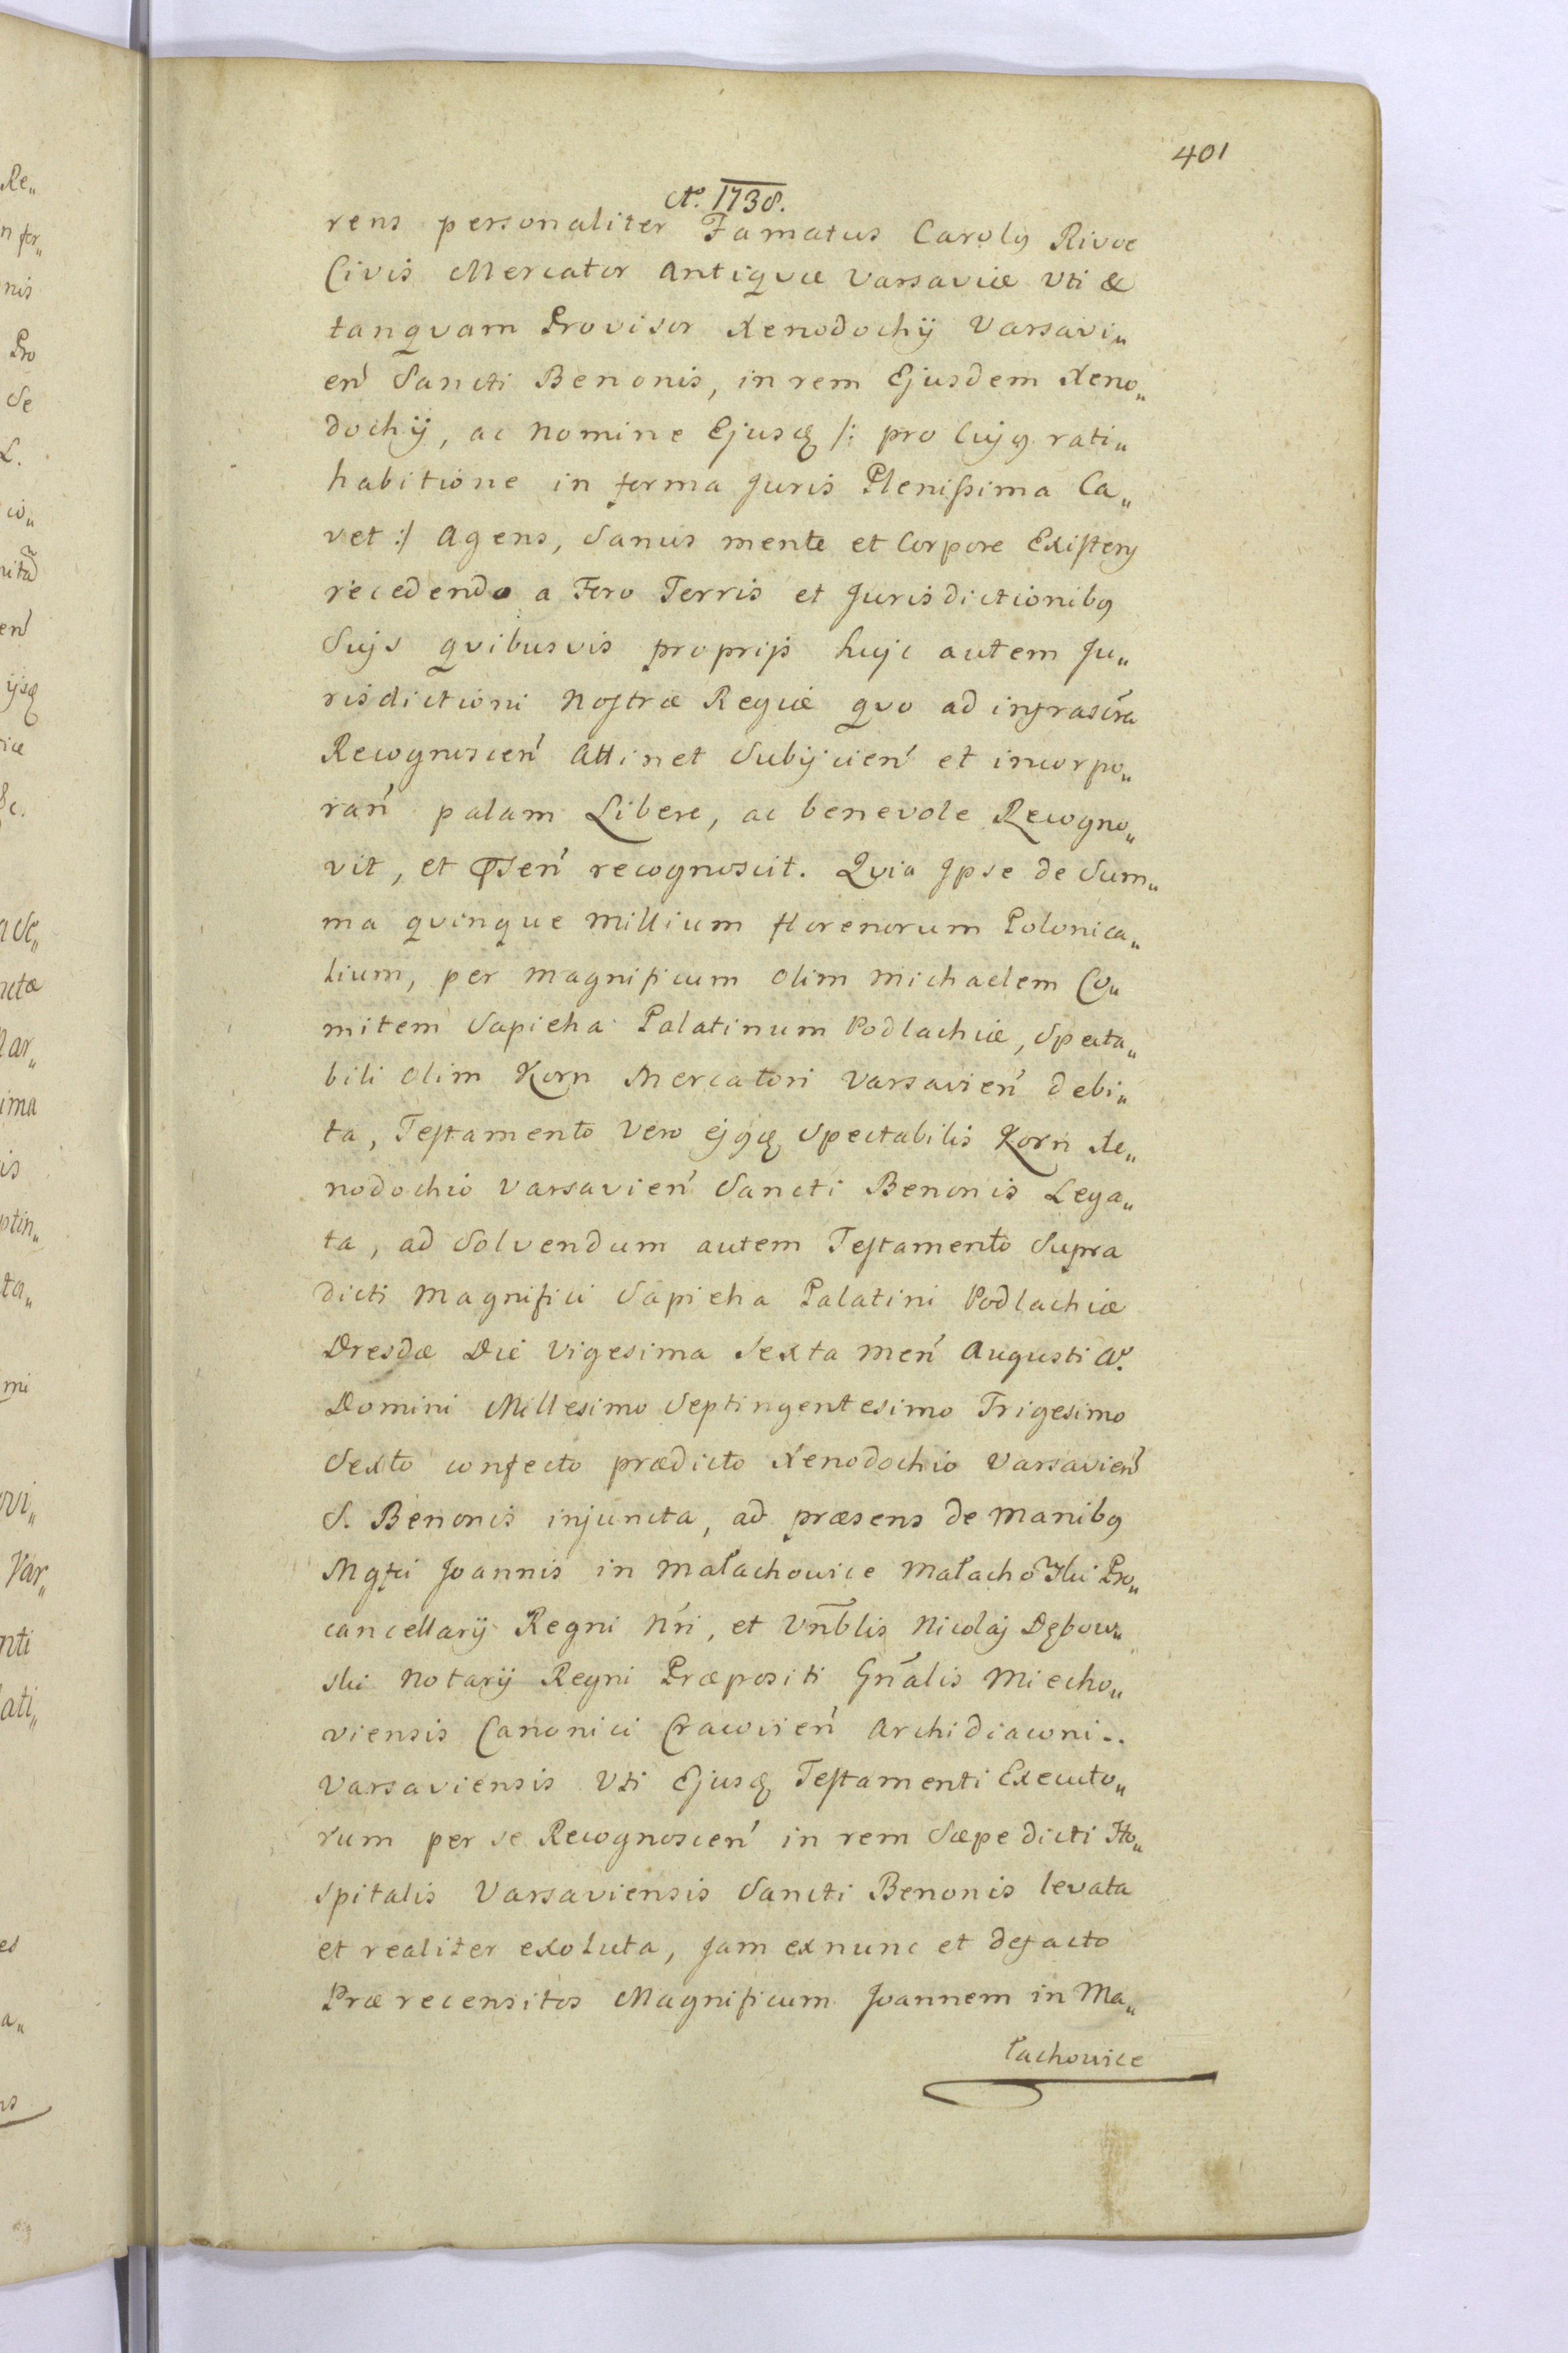 401
Aº. 1738.
rens personaliter Famatus Carolꝰ Rivoe
Civis Mercator Antiqvæ Varsaviæ Vti &
tanqvam Provisor Xenodochij Varsavi„
eń Sancti Benonis, in rem Ejusdem Xeno„
dochij, ac Nomine Ejusꝙ /: pro Cujꝰ rati„
habitione in forma Juris Plenißima Ca„
vet :/ Agens, Sanus mente et Corpore Existenꝰ
recedendo a Foro Terris et Jurisdictionibꝰ
Sujs qvibusvis proprijs hujc autem Ju„
risdictioni Nostræ Regiæ qvo ad infrascr̃a
Recognoscen̛ Attinet Subijcien̛ et incorpo„
ran̛ palam Libere, ac benevole Recogno„
vit, et Pꝛsen̛ recognoscit. Qvia Jpse de Sum„
ma qvinqve Millium florenorum Polonica„
lium, per Magnificum olim Michaelem Co„
mitem Sapieha Palatinum Podlachiæ, Specta„
bili olim Korn Mercatori Varsavien̛ debi„
ta, Testamento Vero ejꝰꝙ Spectabilis Korn Xe„
nodochio Varsavien̛ Sancti Benonis Lega„
ta, ad Solvendum autem Testamento Supra
dicti Magnifici Sapieha Palatini Podlachiæ
Dresdæ Die Vigesima Sexta Men̛ Augusti Aº.
Domini Millesimo Septingentesimo Trigesimo
Sexto confecto prædicto Xenodochio Varsavien̛
S. Benonis injuncta, ad præsens de Manibꝰ
Mgfci Joannis in Małachowice Małachow̃ski Pro„
cancellarij Regni Nr̃i, et Vñblis Nicolaj Dębow„
ski Notarij Regni Præpositi Gñalis Miecho„
viensis Canonici Cracovien̛ Archidiaconi..
Varsaviensis Vti Ejusꝙ Testamenti Executo„
rum per se Recognoscen̛ in rem Sæpe dicti Ho„
spitalis Varsaviensis Sancti Benonis levata
et realiter exoluta, Jam exnunc et defacto
Præ recensitos Magnificum Joannem in Ma„
łachowice